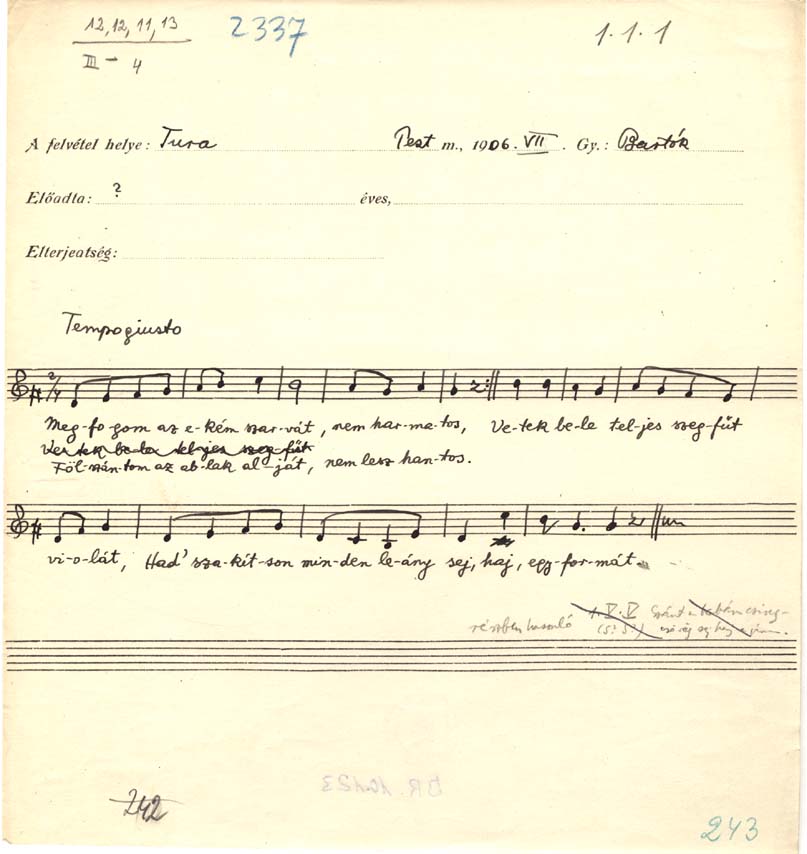 12, 12, 11, 13 2337 1. 1. 1
III - 4
A felvétel helye: Tura Pest m., 1906. VII. Gy.: Bartók
Előadta: ? éves,
Elterjedtség:
Tempo giusto
2/4
Meg-fo-gom az e-kém szar-vát, nem har-ma-tos, Ve-tek be-le tel-jes szeg-fűt
Ve-tek be-le tel-jes szeg-fűt
Föl-szán-tom az ab-lak al-ját, nem lesz han-tos.
vi-o-lát, Had' sza-kít-son min-den le-ány sej, haj, egy-for-mát.
részben hasonló
242
DR. 10423
243